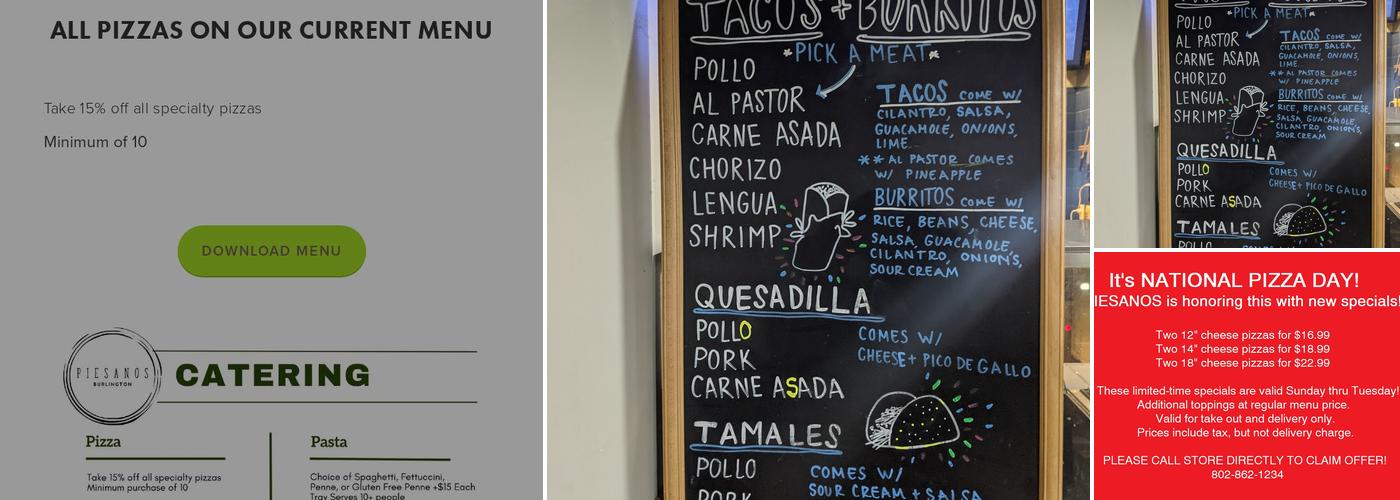 ALL PIZZAS ON OUR CURRENT MENU
Take 15% off all specialty pizzas
Minimum of 10
DOWNLOAD MENU
PIESANOS
BURLINGTON
CATERING
Pizza
Take 15% off all specialty pizzas
Minimum purchase of 10
Pasta
Choice of Spaghetti, Fettuccini,
Penne, or Gluten Free Penne +$15 Each
Tray Serves 10+ people
TACOS + BURRITOS
*PICK A MEAT*
POLLO
AL PASTOR
CARNE ASADA
CHORIZO
LENGUA
SHRIMP
TACOS COME W/
CILANTRO, SALSA,
GUACAMOLE, ONIONS,
LIME
** AL PASTOR COMES
W/ PINEAPPLE
BURRITOS COME W/
RICE, BEANS, CHEESE,
SALSA, GUACAMOLE,
CILANTRO, ONIONS,
SOUR CREAM
QUESADILLA
POLLO
PORK
CARNE ASADA
COMES W/
CHEESE + PICO DE GALLO
TAMALES
POLLO
PORK
COMES W/
SOUR CREAM + SALSA
*PICK A MEAT*
POLLO
AL PASTOR
CARNE ASADA
CHORIZO
LENGUA
SHRIMP
TACOS COME W/
CILANTRO, SALSA,
GUACAMOLE, ONIONS,
LIME
** AL PASTOR COMES
W/ PINEAPPLE
BURRITOS COME W/
RICE, BEANS, CHEESE,
SALSA, GUACAMOLE,
CILANTRO, ONIONS,
SOUR CREAM
QUESADILLA
POLLO
PORK
CARNE ASADA
COMES W/
CHEESE + PICO DE GALLO
TAMALES
POLLO
It's NATIONAL PIZZA DAY!
IESANOS is honoring this with new specials!
Two 12" cheese pizzas for $16.99
Two 14" cheese pizzas for $18.99
Two 18" cheese pizzas for $22.99
These limited-time specials are valid Sunday thru Tuesday!
Additional toppings at regular menu price.
Valid for take out and delivery only.
Prices include tax, but not delivery charge.
PLEASE CALL STORE DIRECTLY TO CLAIM OFFER!
802-862-1234